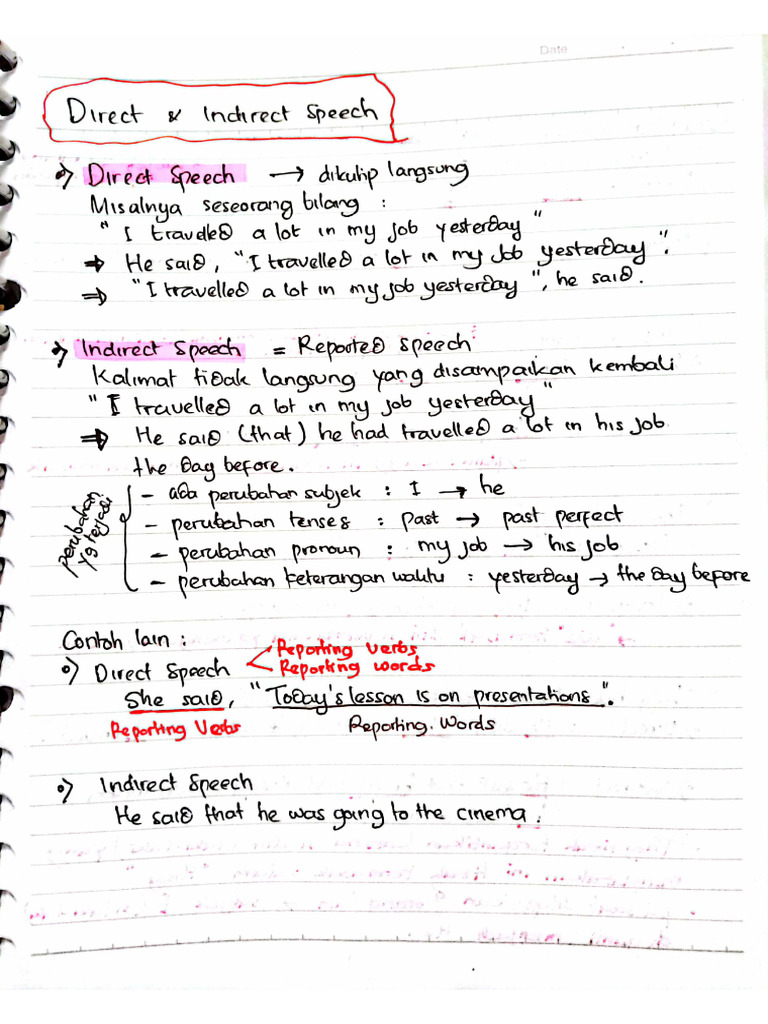 Date
Direct & Indirect Speech
Direct Speech → dikutip langsung
Misalnya seseorang bilang :
" I travelled a lot in my job yesterday "
⇒ He said, " I travelled a lot in my job yesterday ".
⇒ " I travelled a lot in my job yesterday ", he said.
Indirect Speech = Reported Speech
Kalimat tidak langsung yang disampaikan kembali
" I travelled a lot in my job yesterday "
⇒ He said (that) he had travelled a lot in his job
the day before.
perubahan yg terjadi
- ada perubahan subjek : I → he
- perubahan tenses : Past → past perfect
- perubahan pronoun : my job → his job
- perubahan keterangan waktu : yesterday → the day before
Contoh lain :
Reporting Verbs
Direct Speech
Reporting Words
She said, " Today's lesson is on presentations ".
Reporting Verbs Reporting Words
Indirect Speech
He said that he was going to the cinema.